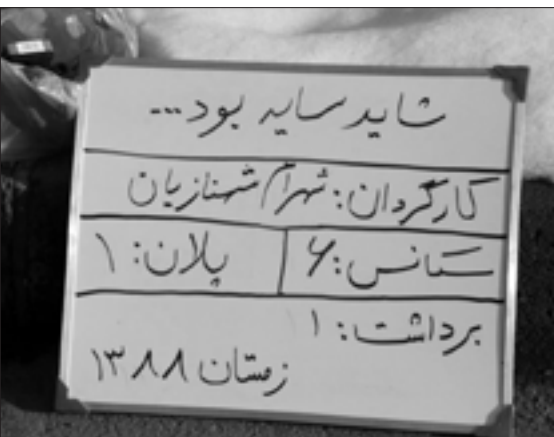 شاید سایه بود...
کارگردان: شهرام شهنازیان
سکانس: ۶ پلان: ۱
برداشت: ۱
زمستان ۱۳۸۸